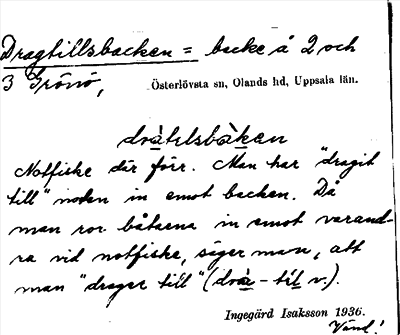 Dragtillsbacken = backe å 2 och
3 Grönö,
Österlövsta sn, Olands hd, Uppsala län.
dràtɩlsbàkɘn
Notfiske där förr. Man har "dragit
till" noden in emot backen. Då
man ror båtarna in emot varand-
ra vid notfiske, säger man, att
man "drager till" (dràr - tíl v.).
Ingegärd Isaksson 1936.
Vänd!